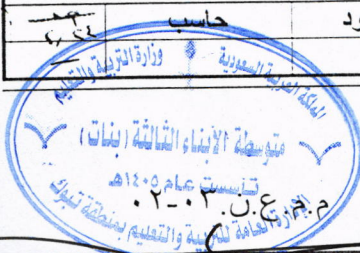 حاسب
المملكة العربية السعودية
وزارة التربية والتعليم
متوسطة الأبناء الثالثة (بنات)
تأسست عام ١٤٠٥هـ
م.م.ع.ن.٠٣-٠٢
الإدارة العامة للتربية والتعليم بمنطقة تبوك